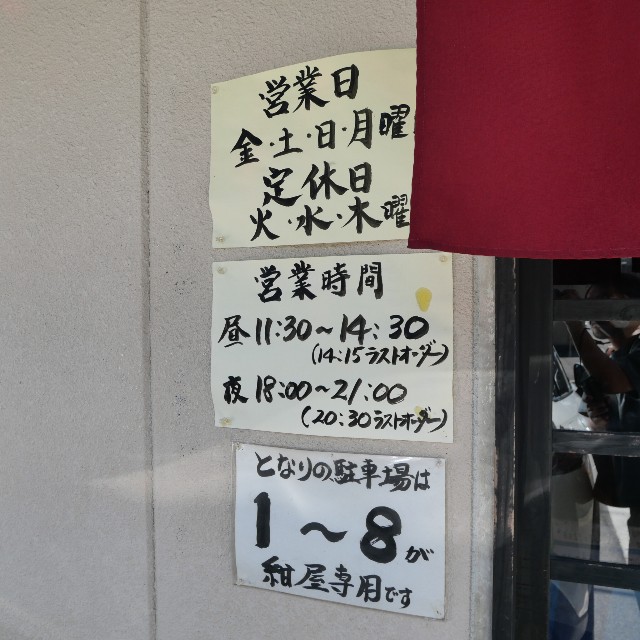 営業日
金・土・日・月曜
定休日
火・水・木曜
営業時間
昼 11:30～14:30
(14:15ラストオーダー)
夜 18:00～21:00
(20:30ラストオーダー)
となりの駐車場は
1～8が
紺屋専用です